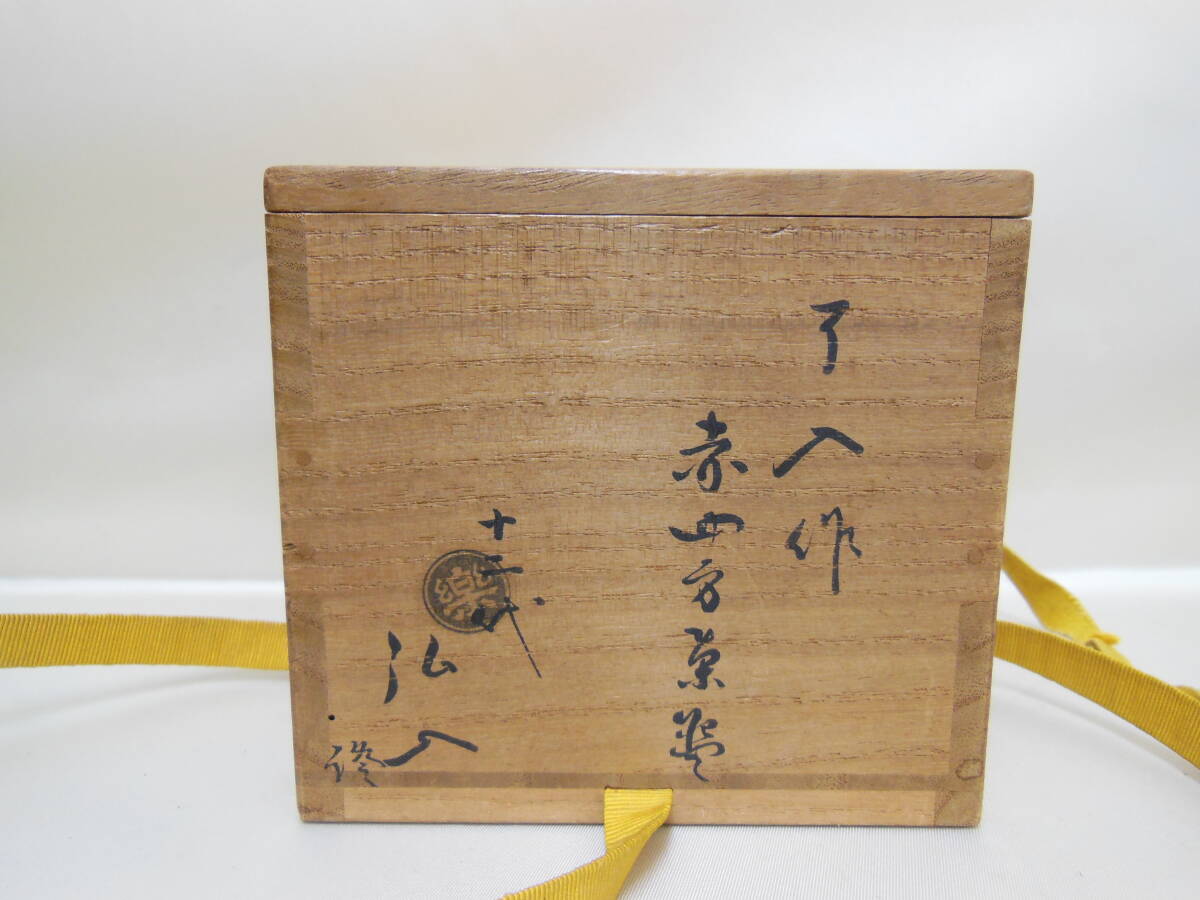 了入作
赤四方菓器
十三代
弘入
證
樂